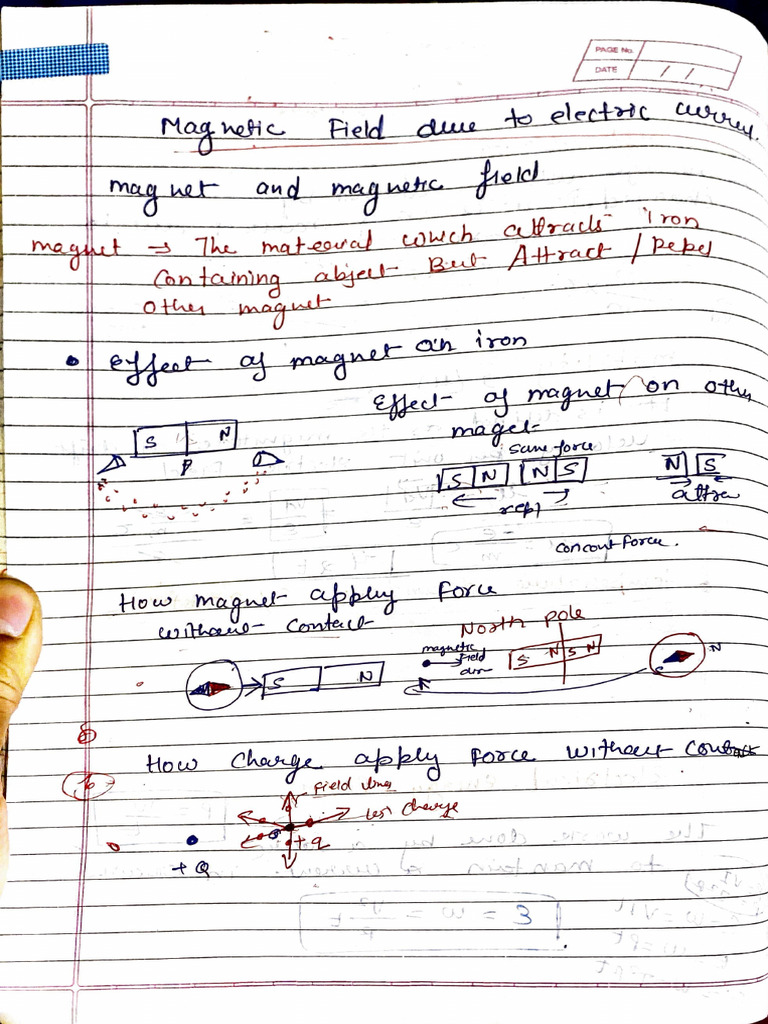 PAGE No.
DATE / /
Magnetic Field due to electric curren.
magnet and magnetic field
magnet → The matesual which attracts iron
Containing abject But Attract / Repel
other magnet
• Effect of magnet on iron
Effect of magnet on other
maget
S N
P
same force
S N N S
repl
N S
attra
concout force.
How magnet apply force
without contact
North pole
S N
magnetic
field
dirn
S N S N
N
S
N
How charge apply force without contact
field lines
test charge
+q
+Q